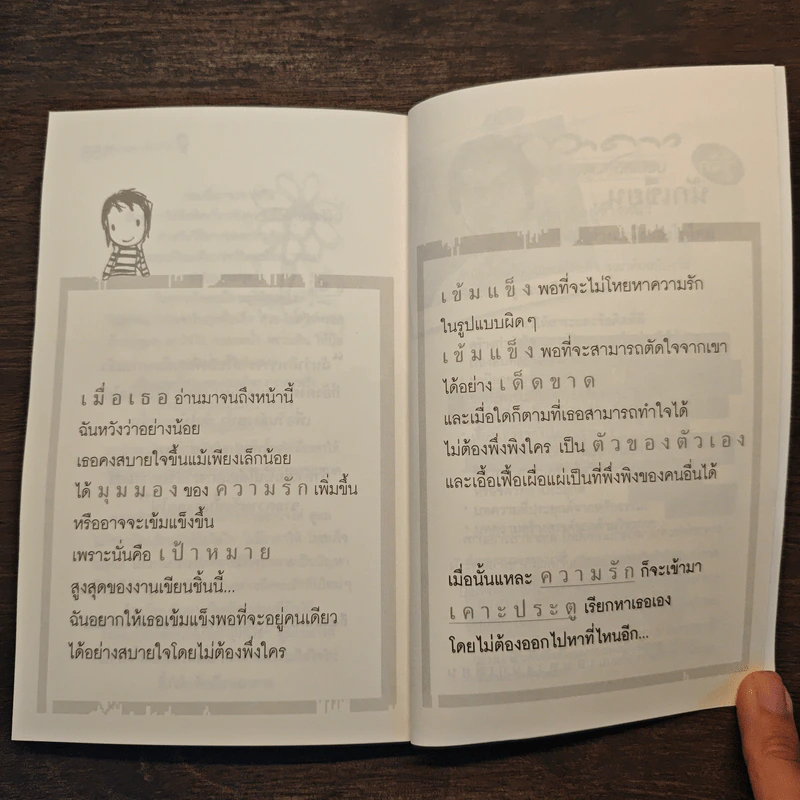 เมื่อเธอ อ่านมาจนถึงหน้านี้
ฉันหวังว่าอย่างน้อย
เธอคงสบายใจขึ้นแม้เพียงเล็กน้อย
ได้ มุมมอง ของ ความรัก เพิ่มขึ้น
หรืออาจจะเข้มแข็งขึ้น
เพราะนั่นคือ เป้าหมาย
สูงสุดของงานเขียนชิ้นนี้...
ฉันอยากให้เธอเข้มแข็งพอที่จะอยู่คนเดียว
ได้อย่างสบายใจโดยไม่ต้องพึ่งใคร
เข้มแข็ง พอที่จะไม่โหยหาความรัก
ในรูปแบบผิดๆ
เข้มแข็ง พอที่จะสามารถตัดใจจากเขา
ได้อย่าง เด็ดขาด
และเมื่อใดก็ตามที่เธอสามารถทำใจได้
ไม่ต้องพึ่งพิงใคร เป็น ตัวของตัวเอง
และเอื้อเฟื้อเผื่อแผ่เป็นที่พึ่งพิงของคนอื่นได้
เมื่อนั้นแหละ ความรัก ก็จะเข้ามา
เคาะประตู เรียกหาเธอเอง
โดยไม่ต้องออกไปหาที่ไหนอีก...